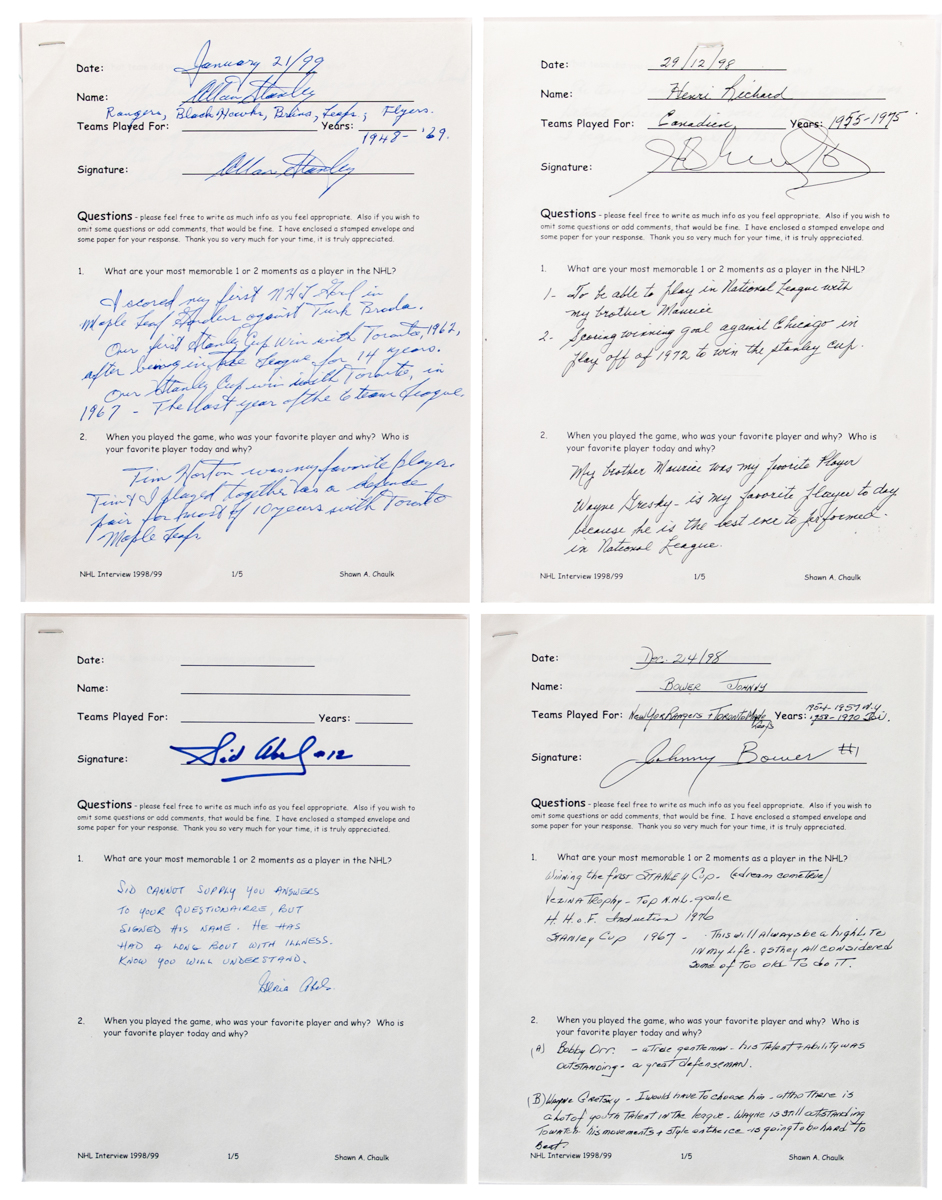 Date: January 21/99
Name: Allan Stanley
Rangers, Black Hawks, Bruins, Leafs, Flyers.
Teams Played For: Years: 1948 - '69.
Signature: Allan Stanley
Questions - please feel free to write as much info as you feel appropriate. Also if you wish to
omit some questions or add comments, that would be fine. I have enclosed a stamped envelope and
some paper for your response. Thank you so very much for your time, it is truly appreciated.
1. What are your most memorable 1 or 2 moments as a player in the NHL?
I scored my first NHL Goal in
Maple Leaf Gardens against Turk Broda.
Our first Stanley Cup Win with Toronto, 1962,
after being in the League for 14 years.
Our Stanley Cup win with Toronto, in
1967 - The last year of the 6 team League.
2. When you played the game, who was your favorite player and why? Who is
your favorite player today and why?
Tim Horton was my favorite player.
Tim & I played together as a defense
pair for most of 10 years with Toronto
Maple Leafs
NHL Interview 1998/99 1/5 Shawn A. Chaulk
Date: 29/12/98
Name: Henri Richard
Teams Played For: Canadien Years: 1955-1975
Signature:
Questions - please feel free to write as much info as you feel appropriate. Also if you wish to
omit some questions or add comments, that would be fine. I have enclosed a stamped envelope and
some paper for your response. Thank you so very much for your time, it is truly appreciated.
1. What are your most memorable 1 or 2 moments as a player in the NHL?
1- To be able to play in National League with
my brother Maurice
2- Scoring winning goal against Chicago in
play off of 1972 to win the stanley cup.
2. When you played the game, who was your favorite player and why? Who is
your favorite player today and why?
My brother Maurice was my favorite Player
Wayne Gresky - is my favorite player to day
because he is the best ever to performed
in National League.
NHL Interview 1998/99 1/5 Shawn A. Chaulk
Date:
Name:
Teams Played For: Years:
Signature: Sid Abel #12
Questions - please feel free to write as much info as you feel appropriate. Also if you wish to
omit some questions or add comments, that would be fine. I have enclosed a stamped envelope and
some paper for your response. Thank you so very much for your time, it is truly appreciated.
1. What are your most memorable 1 or 2 moments as a player in the NHL?
SID CANNOT SUPPLY YOU ANSWERS
TO YOUR QUESTIONAIRRE, BUT
SIGNED HIS NAME. HE HAS
HAD A LONG BOUT WITH ILLNESS.
KNOW YOU WILL UNDERSTAND.
Gloria Abel
2. When you played the game, who was your favorite player and why? Who is
your favorite player today and why?
NHL Interview 1998/99 1/5 Shawn A. Chaulk
Date: Dec. 24/98
Name: BOWER JOHNNY
Teams Played For: New York Rangers + Toronto Maple Leafs Years: 1954-1957 N.Y. 1958-1970
Signature: Johnny Bower #1
Questions - please feel free to write as much info as you feel appropriate. Also if you wish to
omit some questions or add comments, that would be fine. I have enclosed a stamped envelope and
some paper for your response. Thank you so very much for your time, it is truly appreciated.
1. What are your most memorable 1 or 2 moments as a player in the NHL?
Winning the first STANLEY CUP - (a dream come true)
VEZINA TROPHY - TOP N.H.L. goalie
H.H.O.F. Induction 1976
STANLEY CUP 1967 - This will Always be a high Lite
IN my Life. as they All considered
some of Too old To do IT.
2. When you played the game, who was your favorite player and why? Who is
your favorite player today and why?
(A) Bobby Orr. - a True gentleman - his Talent + Ability was
OUTSTANDING - a great defenseman.
(B) Wayne Gretsky - I would have To choose him - altho There is
a lot of youth Talent in the league - Wayne is still outstanding
To watch his movements + style on the ice - is going to be hard to
Beat.
NHL Interview 1998/99 1/5 Shawn A. Chaulk